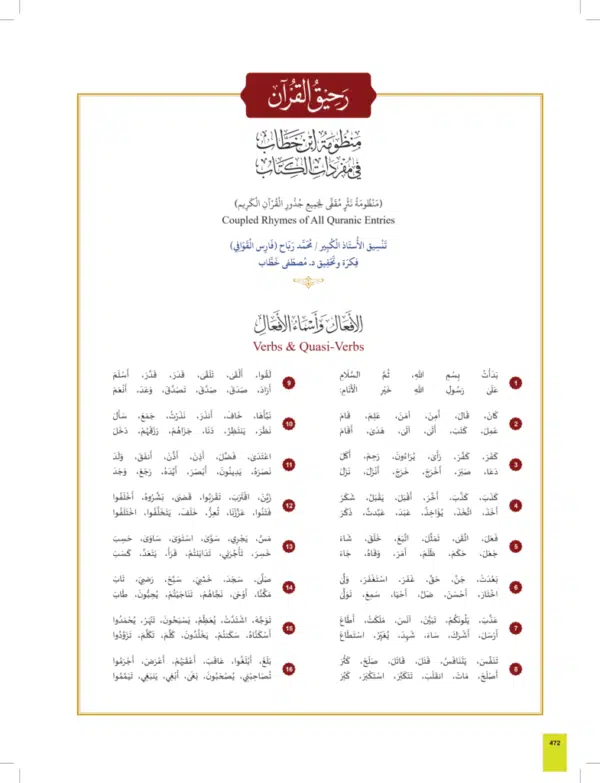 رَحِيقُ القُرْآن
مَنظُومَةُ ابْنِ خَطَّاب
فِي مُفْرَدَاتِ الكِتَاب
(مَنْظُومَةُ نَثْرٍ مُقَفًّى لِجَمِيعِ جُذُورِ الْقُرْآنِ الْكَرِيمِ)
Coupled Rhymes of All Quranic Entries
تَنْسِيق الأُسْتَاذ الْكَبِير / مُحَمَّد رَبَاح (فَارِس الْقَوَافِي)
فِكرَة وتَحْقِيق د. مُصْطَفَى خَطَّاب
الأَفْعَالُ وَأَسْمَاءُ الأَفْعَالِ
Verbs & Quasi-Verbs
1
بَدَأتُ بِسْمِ اللهِ، ثُمَّ السَّلَام
عَلَى رَسُولِ اللهِ خَيْرِ الْأَنَامِ:
2
كَانَ، قَالَ، أَمِنَ، آمَنَ، عَلِمَ، قَامَ
عَمِلَ، كَتَبَ، أَتَى، آتَى، هَدَى، أَقَامَ
3
كَفَرَ، كَفَّرَ، رَأَى، يُرَاءُونَ، رَحِمَ، أَكَلَ
دَعَا، صَبَرَ، أَخْرَجَ، خَرَجَ، أَنْزَلَ، نَزَلَ
4
كَذَبَ، كَذَّبَ، أَخَّرَ، أَقْبَلَ، يَقْبَلُ، شَكَرَ
أَخَذَ، اتَّخَذَ، يُؤَاخِذُ، عَبَدَ، عَبَّدتَّ، ذَكَرَ
5
فَعَلَ، اتَّقَى، تَمَثَّلَ، اتَّبَعَ، خَلَقَ، شَاءَ
جَعَلَ، حَكَمَ، ظَلَمَ، أَمَرَ، وَفَّاهُ، جَاءَ
6
بَعِدَتْ، جَنَّ، حَقَّ، غَفَرَ، اسْتَغْفَرَ، وَلَّى
اخْتَارَ، أَحْسَنَ، ضَلَّ، أَحْيَا، سَمِعَ، تَوَلَّى
7
عَذَّبَ، يَلُونَكُمْ، تَبَيَّنَ، آنَسَ، مَلَكَتْ، أَطَاعَ
أَرْسَلَ، أَشْرَكَ، سَاءَ، شَهِدَ، يُغَيِّرُ، اسْتَطَاعَ
8
تَنَفَّسَ، يَتَنَافَسُ، قَتَلَ، قَاتَلَ، صَلَحَ، كَثُرَ
أَصْلَحَ، مَاتَ، انقَلَبَ، تَتَكَبَّرُ، اسْتَكْبَرَ، كَبُرَ
9
لَقُوا، أَلْقَى، تَلَقَّى، قَدَرَ، قَدَّرَ، أَسْلَمَ
أَرَادَ، صَدَقَ، صَدَّقَ، تَصَدَّقَ، وَعَدَ، أَنْعَمَ
10
نَبَّأَهَا، خَافَ، أَنذَرَ، نَذَرْتُ، جَمَعَ، سَأَلَ
نَظَرَ، يَنتَظِرُ، دَنَا، جَزَاهُمْ، رَزَقَهُمْ، دَخَلَ
11
اعْتَدَى، فَضَّلَ، أَذِنَ، أَذَّنَ، أَنفَقَ، وَلَدَ
نَصَرَهُ، يَدِينُونَ، أَبْصَرَ، أَيَّدَهُ، رَجَعَ، وَجَدَ
12
زَيَّنَ، اقْتَرَبَ، تَقْرَبُوا، قَضَى، بَشَّرُوهُ، أَخْلَفُوا
فَتَنُوا، عَزَّزْنَا، تُعِزُّ، خَلَفَ، يَتَخَلَّفُوا، اخْتَلَفُوا
13
مَسَّ، يَجْرِي، سَوَّى، اسْتَوَى، سَاوَى، حَسِبَ
خَسِرَ، تَأْجُرَنِي، تَدَايَنتُمْ، قَرَأَ، يَتَعَدَّ، كَسَبَ
14
صَلَّى، سَجَدَ، حَمِيَ، سَبَّحَ، رَضِيَ، تَابَ
مَكَّنَّا، أَوْحَى، نَجَّاهُمْ، تَنَاجَيْتُمْ، يُحِبُّونَ، طَابَ
15
تَوَجَّهَ، اشْتَدَّتْ، يُعَظِّمْ، يَسْبَحُونَ، تَنْهَرْ، يُحْمَدُوا
أَسْكَنَّاهُ، سَكَنتُمْ، يَخْلُدُونَ، كَلَّمَ، تَكَلَّمَ، تَزَوَّدُوا
16
بَلَغَ، أَبْلَغُوا، عَاقَبَ، أَعْقَبَهُمْ، أَعْرَضَ، أَجْرَمُوا
تُصَاحِبْنِي، يُصْحَبُونَ، بَغَى، أَبْغِي، يَنبَغِي، تَيَمَّمُوا
472